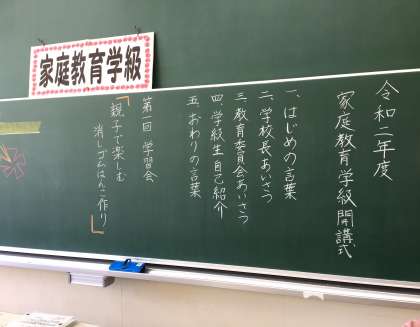 家庭教育学級
令和二年度
家庭教育学級開講式
一、はじめの言葉
二、学校長あいさつ
三、教育委員会あいさつ
四、学級生自己紹介
五、おわりの言葉
第一回 学習会
「親子で楽しむ
消しゴムはんこ作り」